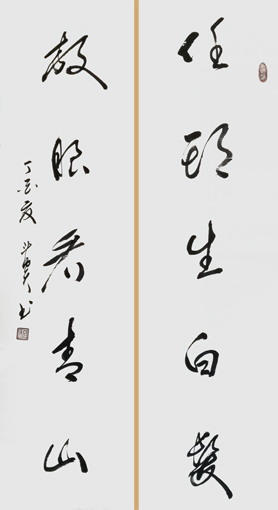 任頭生白髮
放眼看青山
丁酉夏